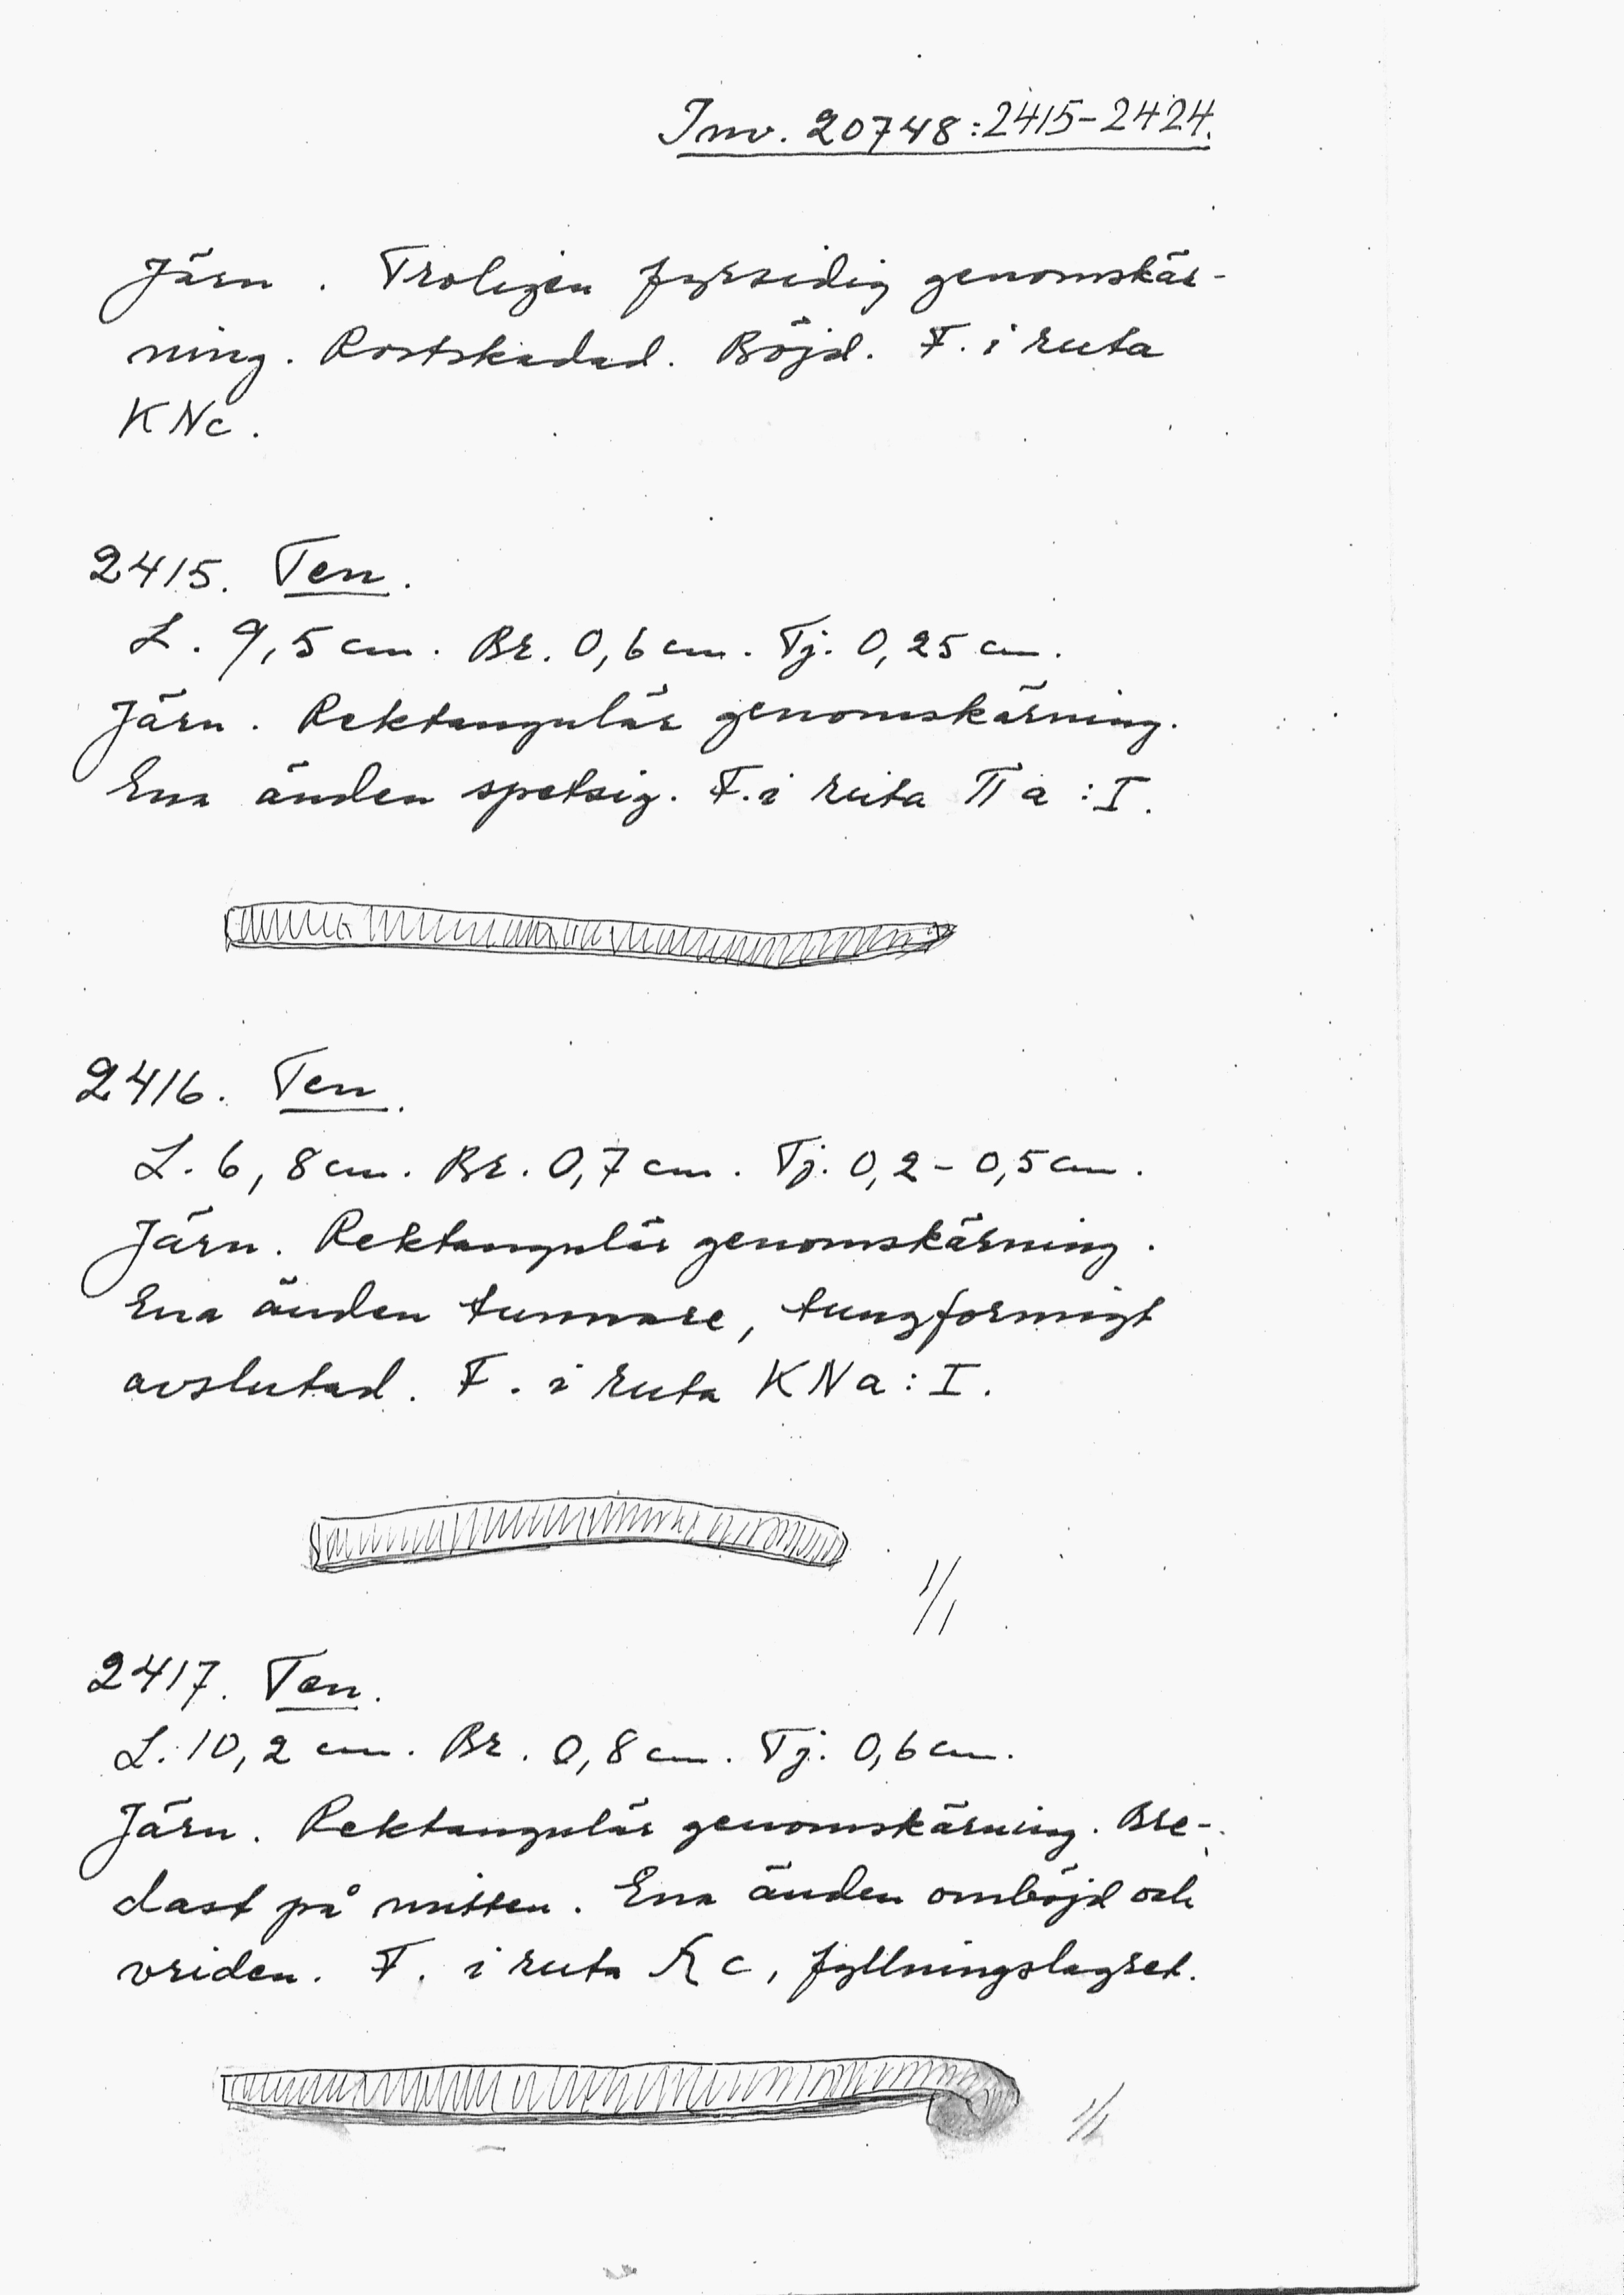 Inv. 20748:2415-2424.
Järn. Troligen fyrsidig genomskär-
ning. Rostskadad. Böjd. F. i ruta
KNc.
2415. Ten.
L. 9,5 cm. Br. 0,6 cm. Tj. 0,25 cm.
Järn. Rektangulär genomskärning.
Ena änden spetsig. F. i ruta Πa:I.
2416. Ten.
L. 6,8 cm. Br. 0,7 cm. Tj. 0,2-0,5 cm.
Järn. Rektangulär genomskärning.
Ena änden tunnare, tungformigt
avslutad. F. i ruta KNa:I.
1/1
2417. Ten.
L. 10,2 cm. Br. 0,8 cm. Tj. 0,6 cm.
Järn. Rektangulär genomskärning. Bre-
dast på mitten. Ena änden omböjd och
vriden. F. i ruta c, fyllningslagret.
1/1